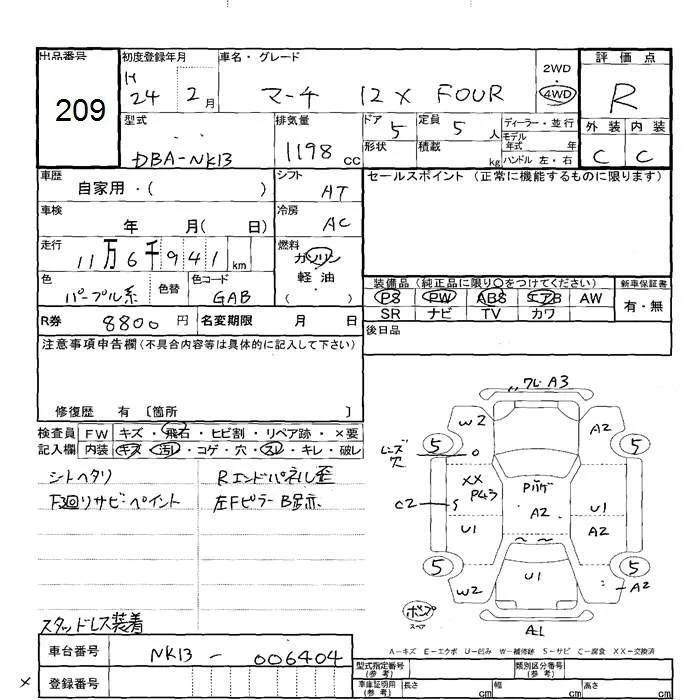 出品番号 初度登録年月 車名・グレード 2WD 評価点
209
H
24 2月 マーチ 12X FOUR 4WD R
型式 排気量 ドア 5 定員 5 人 ディーラー・並行 外装 内装
モデル
年式 年
DBA-NK13 1198 cc 形状 積載 kg ハンドル 左・右 C C
車歴 自家用・( ) シフト AT セールスポイント (正常に機能するものに限ります)
車検 年 月( 日) 冷房 AC
走行 11万6千941km 燃料 ガソリン
軽油
( )
色 パープル系 色替 色コード GAB
装備品 (純正品に限り○をつけてください) 新車保証書
PS PW ABS エアB AW 有・無
SR ナビ TV カワ
R券 8800円 名変期限 月 日 後日品
注意事項申告欄(不具合内容等は具体的に記入して下さい)
修復歴 有 〔箇所 〕
検査員 FW キズ・飛石・ヒビ割・リペア跡・×要
記入欄 内装 キズ・汚レ・コゲ・穴・スレ・キレ・破レ
シートヘタリ Rエンドパネル歪
左Fピラー
スタッドレス装着
ワレ A3
W2 A2
5 5
レンズ
穴
XX
P43
C2 S A2 U1
U1 A2
5 5
W2 U1 A2
スペア
A1
A-キズ E-エクボ U-凹み W-補修跡 S-サビ C-腐食 XX-交換済
車台番号 NK13-006404
× 登録番号
型式指定番号
(参考) 類別区分番号
(参考)
車庫証明用
(参考) 長さ cm 幅 cm 高さ cm